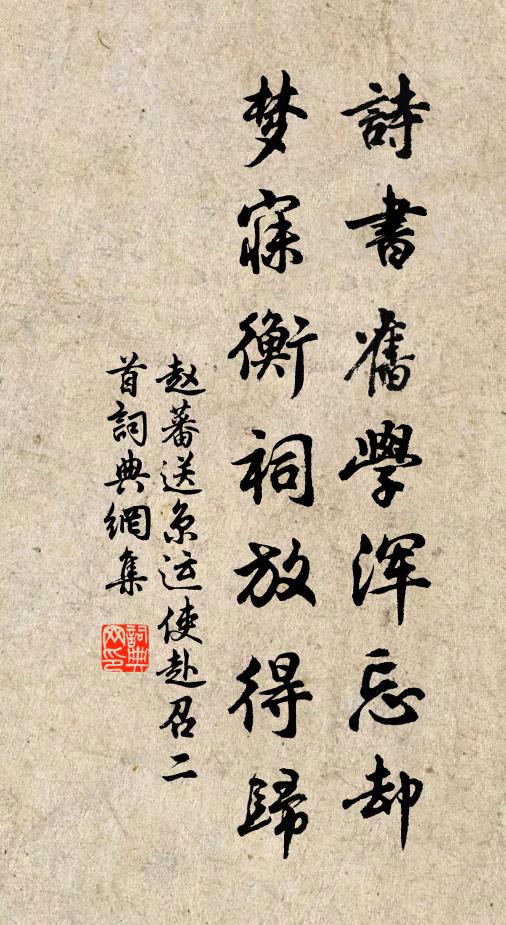 詩書舊學浑忘却
梦寐衡祠放得歸
赵蕃送京运使赴召二
首詞典網集
詞典
网印